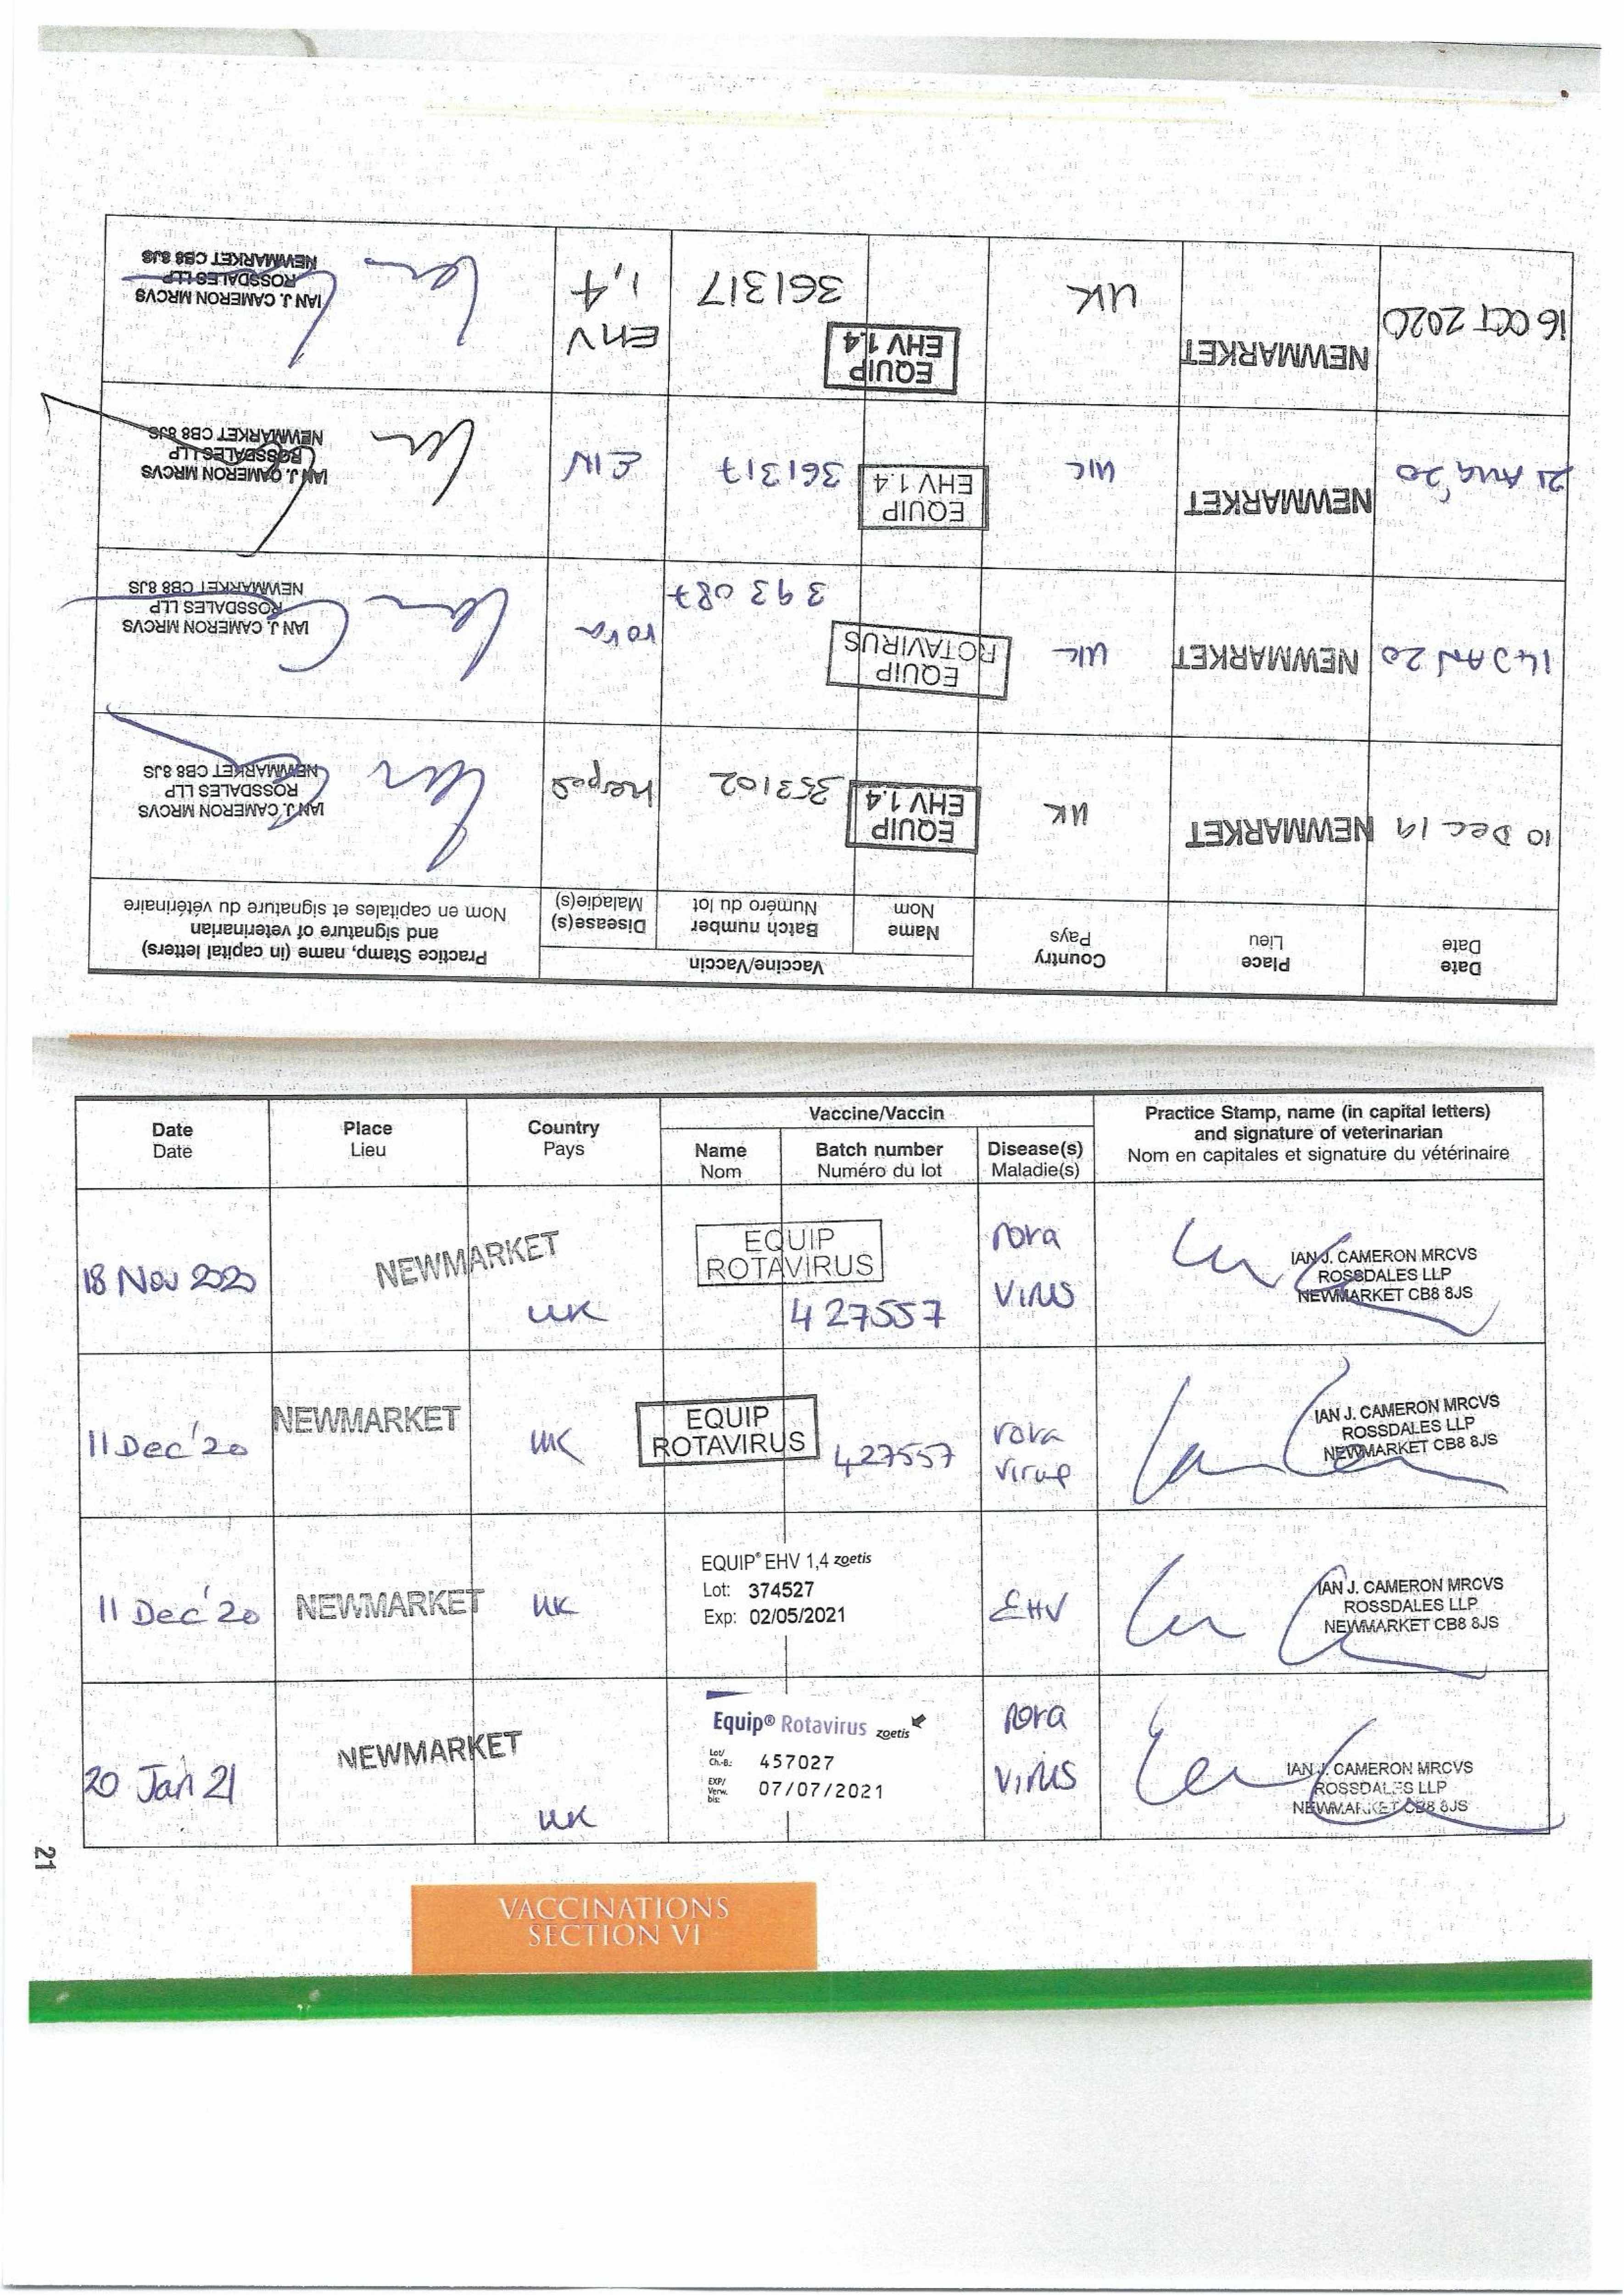 Date
Date
Place
Lieu
Country
Pays
Vaccine/Vaccin
Name
Nom
Batch number
Numéro du lot
Disease(s)
Maladie(s)
Practice Stamp, name (in capital letters)
and signature of veterinarian
Nom en capitales et signature du vétérinaire
10 Dec 19
NEWMARKET
UK
EQUIP
EHV 1.4
353102
herpes
IAN J. CAMERON MRCVS
ROSSDALES LLP
NEWMARKET CB8 8JS
14 JAN 20
NEWMARKET
UK
EQUIP
ROTAVIRUS
393087
rota
IAN J. CAMERON MRCVS
ROSSDALES LLP
NEWMARKET CB8 8JS
21 Aug '20
NEWMARKET
UK
EQUIP
EHV 1.4
361317
IAN J. CAMERON MRCVS
ROSSDALES LLP
NEWMARKET CB8 8JS
16 OCT 2020
NEWMARKET
UK
EQUIP
EHV 1.4
361317
EHV
1,4
IAN J. CAMERON MRCVS
ROSSDALES LLP
NEWMARKET CB8 8JS
Date
Date
Place
Lieu
Country
Pays
Vaccine/Vaccin
Name
Nom
Batch number
Numéro du lot
Disease(s)
Maladie(s)
Practice Stamp, name (in capital letters)
and signature of veterinarian
Nom en capitales et signature du vétérinaire
18 Nov 2020
NEWMARKET
UK
EQUIP
ROTAVIRUS
427557
rota
virus
IAN J. CAMERON MRCVS
ROSSDALES LLP
NEWMARKET CB8 8JS
11 Dec '20
NEWMARKET
UK
EQUIP
ROTAVIRUS
427557
rota
virus
IAN J. CAMERON MRCVS
ROSSDALES LLP
NEWMARKET CB8 8JS
11 Dec '20
NEWMARKET
UK
EQUIP® EHV 1,4 zoetis
Lot: 374527
Exp: 02/05/2021
EHV
IAN J. CAMERON MRCVS
ROSSDALES LLP
NEWMARKET CB8 8JS
20 Jan 21
NEWMARKET
UK
Equip® Rotavirus zoetis
Lot/
Ch.-B.: 457027
EXP/
Verw.
bis: 07/07/2021
rota
virus
IAN J. CAMERON MRCVS
ROSSDALES LLP
NEWMARKET CB8 8JS
21
VACCINATIONS
SECTION VI